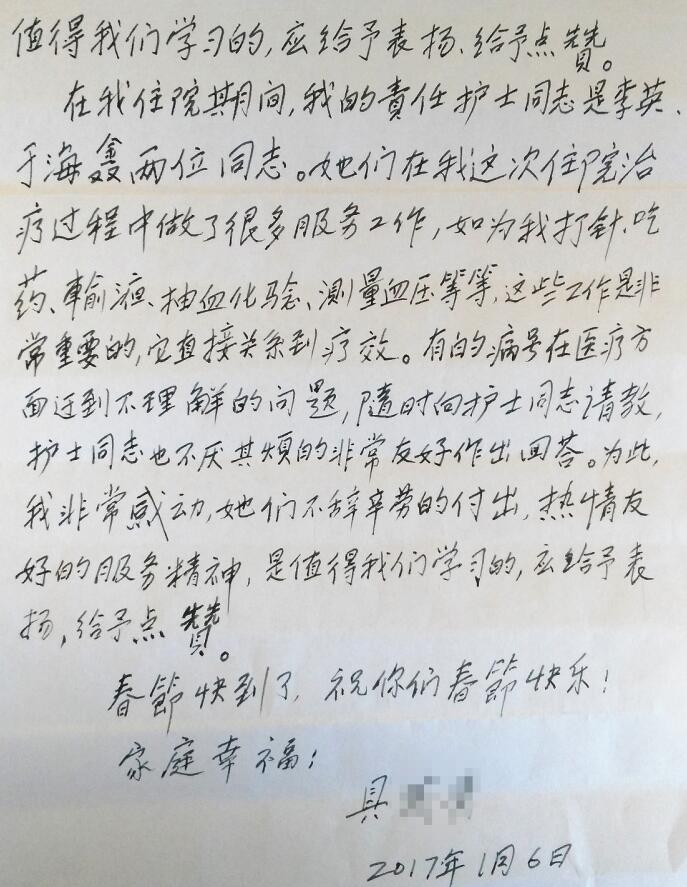 值得我们学习的,应给予表扬、给予点赞。
在我住院其期间,我的責任护士同志是李英、
于海鑫两位同志。她们在我这次住院治
疗过程中做了很多服务工作,如为我打針、吃
药、輸液、抽血化驗、測量血压等等,这些工作是非
常重要的,它直接关系到疗效。有的病号在医疗方
面迂到不理解的问题,隨时向护士同志请教,
护士同志也不厌其煩的非常友好作出回答。为此,
我非常感动,她们不辞辛劳的付出,热情友
好的服务精神,是值得我们学习的,应给予表
扬,给予点赞。
春節快到了,祝你们春節快乐!
家庭幸福!
具
2017年1月6日